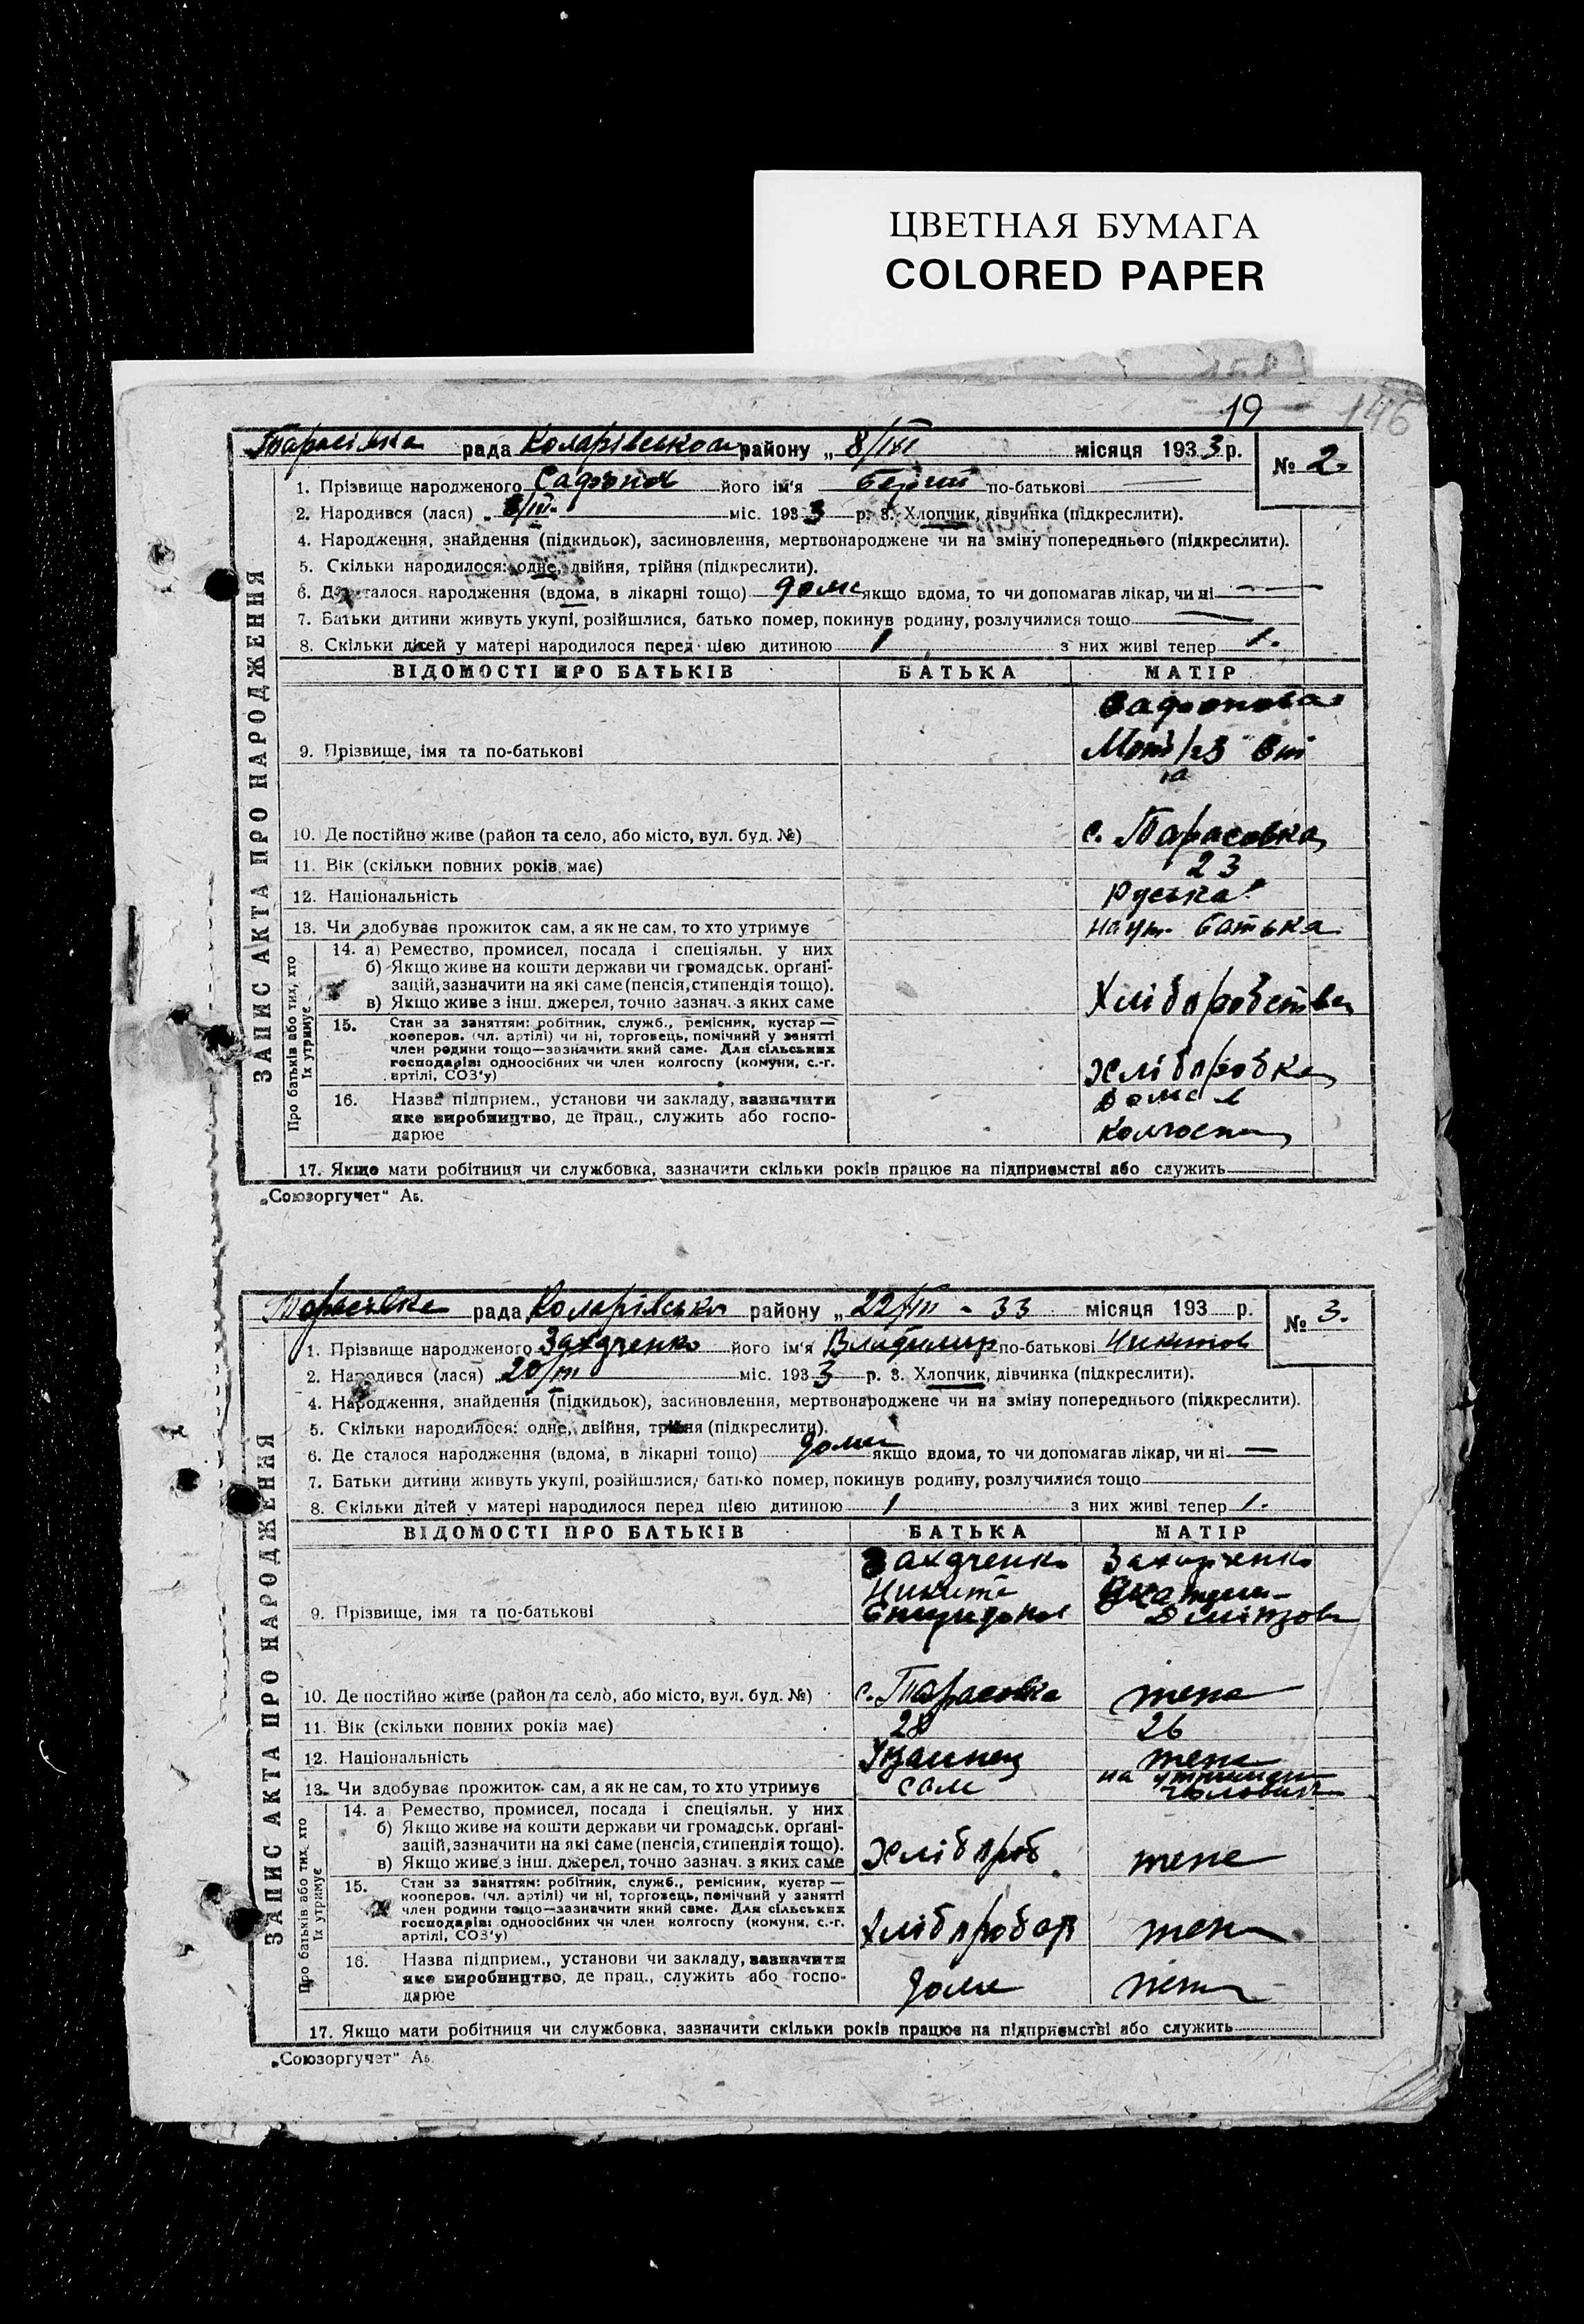 ЦВЕТНАЯ БУМАГА
COLORED PAPER
19
146
Тарасівка рада Коларівського району „ 8/III місяця 1933 р.
№ 2.
1. Прізвище народженого Сафонов його ім'я Сергій по-батькові
2. Народився (лася) „ 8/III. міс. 1933 р. 3. Хлопчик, дівчинка (підкреслити).
4. Народження, знайдення (підкидьок), засиновлення, мертвонароджене чи на зміну попереднього (підкреслити).
5. Скільки народилося: одне, двійня, трійня (підкреслити).
6. Де сталося народження (вдома, в лікарні тощо) дома якщо вдома, то чи допомагав лікар, чи ні
7. Батьки дитини живуть укупі, розійшлися, батько помер, покинув родину, розлучилися тощо
8. Скільки дітей у матері народилося перед цією дитиною 1 з них живі тепер 1.
ЗАПИС АКТА ПРО НАРОДЖЕННЯ
ВІДОМОСТІ ПРО БАТЬКІВ БАТЬКА МАТІР
Сафонова
9. Прізвище, імя та по-батькові
10. Де постійно живе (район та село, або місто, вул. буд. №) с. Тарасовка
11. Вік (скільки повних років має) 23
12. Національність Руська
13. Чи здобуває прожиток сам, а як не сам, то хто утримує на ут. батька
Про батьків або тих, хто їх утримує
14. а) Ремество, промисел, посада і спеціяльн. у них
б) Якщо живе на кошти держави чи громадськ. органі-
зацій, зазначити на які саме (пенсія, стипендія тощо).
в) Якщо живе з інш. джерел, точно зазнач. з яких саме
15. Стан за заняттям: робітник, служб., ремісник, кустар —
кооперов. (чл. артілі) чи ні, торговець, помічний у занятті
член родини тощо—зазначити який саме. Для сільських
господарів: одноосібних чи член колгоспу (комуни, с.-г.
артілі, СОЗ'у) Хліборобка
16. Назва підприєм., установи чи закладу, зазначити
яке виробництво, де прац., служить або госпо-
дарює
17. Якщо мати робітниця чи службовка, зазначити скільки років працює на підприємстві або служить
„Союзоргучет“ Аб.
Тарасівка рада Коларівсько району „ 22/III - 33 місяця 193 р.
№ 3.
1. Прізвище народженого його ім'я Владимир по-батькові Никитов
2. Народився (лася) „ 20/III міс. 1933 р. 3. Хлопчик, дівчинка (підкреслити).
4. Народження, знайдення (підкидьок), засиновлення, мертвонароджене чи на зміну попереднього (підкреслити).
5. Скільки народилося: одне, двійня, трійня (підкреслити).
6. Де сталося народження (вдома, в лікарні тощо) дома якщо вдома, то чи допомагав лікар, чи ні
7. Батьки дитини живуть укупі, розійшлися, батько помер, покинув родину, розлучилися тощо
8. Скільки дітей у матері народилося перед цією дитиною 1 з них живі тепер 1.
ЗАПИС АКТА ПРО НАРОДЖЕННЯ
ВІДОМОСТІ ПРО БАТЬКІВ БАТЬКА МАТІР
Никита
9. Прізвище, імя та по-батькові
10. Де постійно живе (район та село, або місто, вул. буд. №) с. Тарасовка теж
11. Вік (скільки повних років має) 28 26
12. Національність
13. Чи здобуває прожиток сам, а як не сам, то хто утримує сам на
Про батьків або тих, хто їх утримує
14. а Ремество, промисел, посада і спеціяльн. у них
б) Якщо живе на кошти держави чи громадськ. органі-
зацій, зазначити на які саме (пенсія, стипендія тощо).
в) Якщо живе з інш. джерел, точно зазнач. з яких саме
15. Стан за заняттям: робітник, служб., ремісник, кустар —
кооперов. (чл. артілі) чи ні, торговець, помічний у занятті
член родини тощо—зазначити який саме. Для сільських
господарів: одноосібних чи член колгоспу (комуни, с.-г.
артілі, СОЗ'у)
16. Назва підприєм., установи чи закладу, зазначити
яке виробництво, де прац., служить або госпо-
дарює дома
17. Якщо мати робітниця чи службовка, зазначити скільки років працює на підприємстві або служить
„Союзоргучет“ Аб.